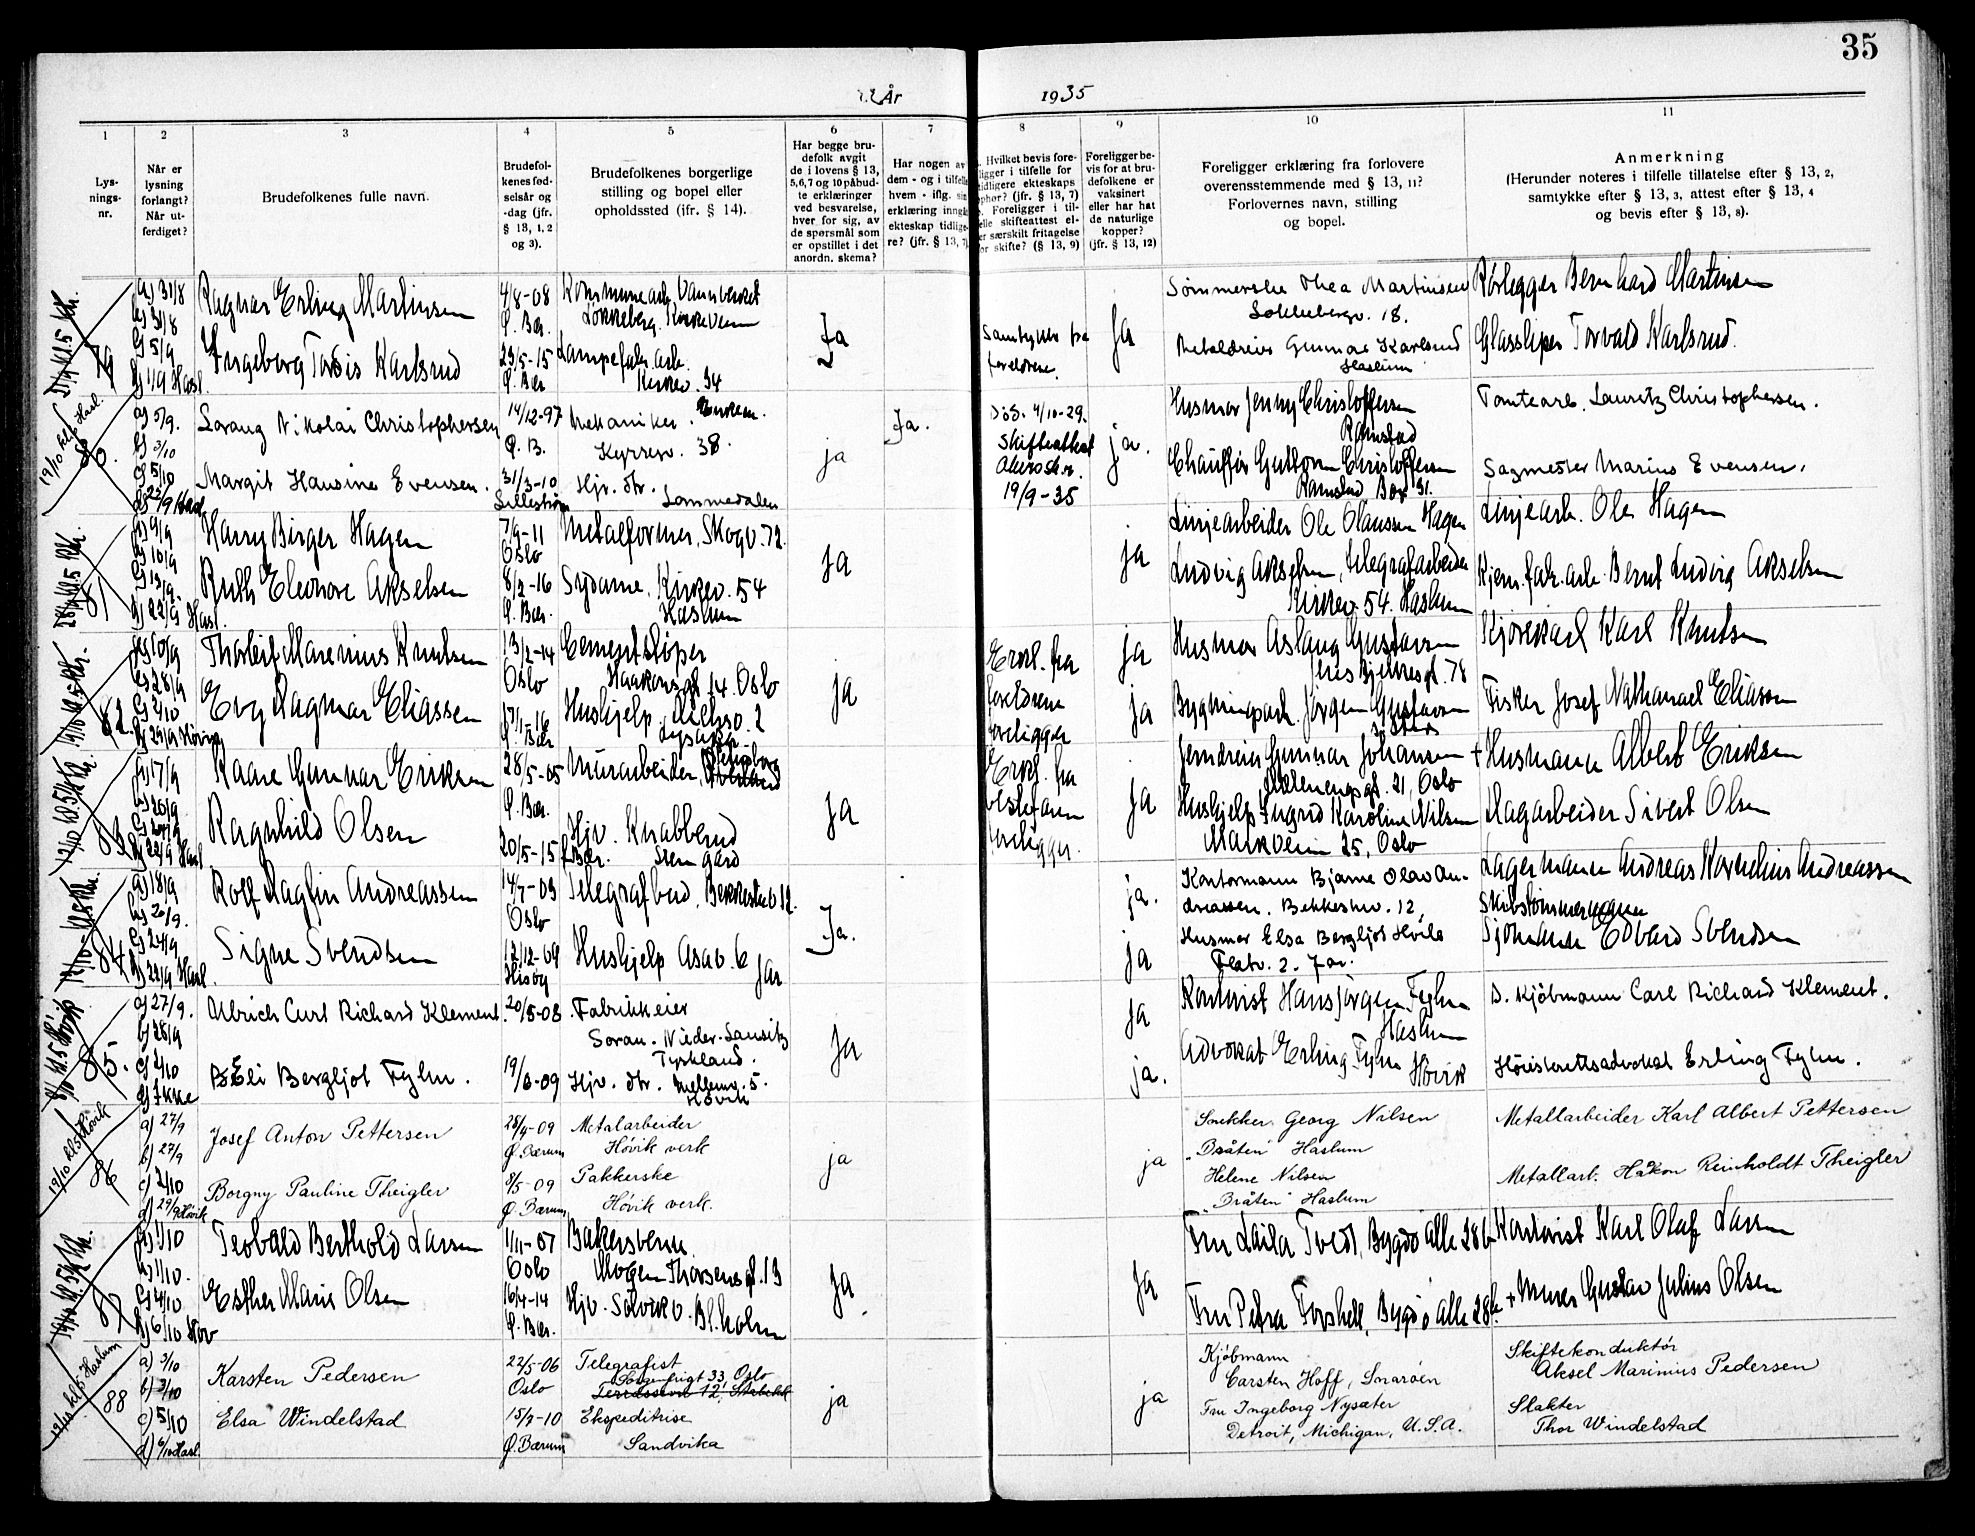 35
År 1935
1 2 3 4 5 6 7 8 9 10 11
Lys-
nings-
nr.
Når er
lysning
forlangt?
Når ut-
ferdiget?
Brudefolkenes fulle navn.
Brudefol-
kenes fød-
selsår og
-dag (jfr.
§ 13, 1, 2
og 3).
Brudefolkenes borgerlige
stilling og bopel eller
opholdssted (ifr. § 14).
Har begge bru-
defolk avgit
de i lovens § 13,
5,6,7 og 10 påbud-
te erklæringer
ved besvarelse,
hver for sig, av
de spørsmål som
er opstillet i det
anordn. skema?
Har nogen av
dem - og i tilfelle
hvem - iflg. sin
erklæring inngå
ekteskap tidlige-
re? (jfr. § 13, 7)
Hvilket bevis fore-
ligger i tilfelle for
tidligere ekteskaps
ophør? (jfr. § 13, 7)
Foreligger i til-
felle skifteattest el-
ler særskilt fritagelse
for skifte? (§ 13, 9)
Foreligger be-
vis for at bru-
defolkene er
vaksinert
eller har hat
de naturlige
kopper?
(jfr. § 13, 12)
Foreligger erklæring fra forlovere
overensstemmende med § 13, 11?
Forlovernes navn, stilling
og bopel.
Anmerkning
(Herunder noteres i tilfelle tillatelse efter § 13, 2,
samtykke efter § 13, 3, attest efter § 13, 4
og bevis efter § 13, 8).
79
a) 31/8
b) 31/8
c) 5/9
d) 11/9 Hasl.
Ragnar Erling Martinsen
4/8-08
Ø. Bær.
Kommunearb. Vannverket
Løkkeberg. Kirkeveien
Ingeborg Tordis Karlsrud
23/5-15
Ø. Bær
Lampefabr. arb.
Kirkev. 34
Ja
Samtykke fra
foreldrene.
Ja
Sømmerske Thea Martinsen
Løkkebergv. 18.
Gunnar Karlsrud
Haslum
Rørlegger Bernhard Martinsen
Glassliper Torvald Karlsrud.
80.
a) 5/9.
b) 3/10
c) 5/10
Lorang Nikolai Christophersen
14/12-97
Ø. B.
Mekaniker.
38.
Margit Hansine Evensen.
31/3-10
Lillestrøm
Hjv. dtr. Lommedalen
ja
Ja.
Død. 4/10-29.
Skifteattest
Akers skr.
19/9-35
ja.
Husmor Jenny Christoffersen
Ramstad
Chauffør Guttorm Christoffersen
Ramstad Bær 31.
Tomtearb. Lauretz Christophersen.
Sagmester Marius Evensen.
81
a) 9/9
b) 10/9
c) 19/9.
d) 22/9 Hasl.
Harry Birger Hagen
7/9-11
Oslo
Metalformer, Skogv. 72.
Ruth Eleonore Akselsen
8/2-16
Ø. Bær.
Sydame, Kirkev. 54
Haslum
Ja
ja
Linjearbeider Ole Olaussen Hagen
Ludvig Akselsen, telegrafarbeider
Kirkev. 54. Haslum
Linjearb. Ole Hagen
Kjem. fabr. arb. Bernt Ludvig Akselsen
82.
a) 10/9
b) 28/9
c) 2/10
Thorleif Marenius Knutsen
13/2-14
Oslo
Cementstøper
Haakonsgt. 14. Oslo
Evy Dagmar Eliassen
17/1-16
Ø. Bær
Hushjelp. 2
Lysaker
Ja
Erkl. fra
foreldrene
foreligger
ja
ja
Husmor Aslaug Gustavsen
78
Bygningsarb. Jørgen Gustavsen
Kjørekarl Karl Knutsen
Fisker Josef Nathanael Eliassen
83
a) 17/9
b) 20/9
c) 24/9
d) 22/9 Hasl
Kaare Gunnar Eriksen
28/5-05
Ø. Bær.
Murarbeider,
Ragnhild Olsen
20/5-15
Ø. Bær.
Hjv. Knabberud
Stein gård
Ja
Erkl. fra
foreligger.
Ja
Jerndreier Gunnar Johansen
Møllenbergsgt. 21, Oslo
Hushjelp Ingrid Karoline Nilsen
Markveien 25, Oslo
+ Husmann Albert Eriksen
Dagarbeider Sivert Olsen
84
a) 18/9
b) 20/9.
c) 24/9
d) 29/9 Hasl.
Rolf Dagfin Andreassen
14/7-03
Oslo
Telegrafbud, Bekkestuv. 12.
Signe Svendsen
12/12-09
Hisøy
Hushjelp Asav. 6
Jar
Ja.
ja.
ja
Kontormann Bjarne Olav An-
dreassen. Bekkestuv. 12,
Husmor Elsa Bergljot Hvila
2. Jar.
Lagermann Andreas Kornelius Andreassen
Skibstømmermann
Sjømann Edvard Svendsen
85.
a) 27/9.
b) 28/9
c) 2/10
d) Ikke
Ulrich Curt Richard Klement
20/5-08
Fabrikkeier
Sorau. Nieder-Lausitz
Tyskland.
Eli Bergljot Fylm.
19/6-09
Hjv. dtr. Mellemv. 5.
Høvik
Ja
ja
ja.
Kontorist Hans Jørgen Fylm
Haslum
Advokat Erling Fylm
Høvik
D. Kjøbmann Carl Richard Klement.
Høiesterettsadvokat Erling Fylm.
86
a) 27/9
b) 27/9
c) 2/10
d) 29/9 Høvik
Josef Anton Pettersen
28/4-09
Ø. Bærum
Metalarbeider
Høvik verk
Borgny Pauline Theigler
8/5-09
Ø. Bærum
Pakkerske
Høvik verk.
ja
ja
Snekker Georg Nilsen
"Bråten" Haslum
Helene Nilsen
"Bråten" Haslum
Metallarbeider Karl Albert Pettersen
Metallarb. Håkon Reinholdt Theigler
87
a) 1/10
b) 1/10.
c) 4/10
d) 6/10
Teobald Berthold Larsen
1/11-07
Oslo
Bakersvenn.
Mogens Thorsensgt. 13
Esther Marie Olsen
16/4-14
Ø. Bær.
Hjv. Solvikv. Bl.holm
Ja
Ja
Fru Laila Tvedt, Bygdø Alle 28b
Fru Petra Forshell, Bygdø Alle 28b.
Kontorist Karl Olaf Larsen
+ Murer Gustav Julius Olsen
88
a) 3/10
b) 3/10
c) 5/10
d) 6/10 Hasl.
Karsten Pedersen
22/5-06
Oslo
Telegrafist
Sorgenfrigt 33, Oslo
Terrasseve 12, Stabekk
Elsa Windelstad
15/2-10
Ø. Bærum
Ekspeditrise
Sandvika
ja
ja
Kjøbmann
Carsten Hoff, Snarøen
Fru Ingeborg Nysæter
Detroit, Michigan, U.S.A.
Skiftekonduktør
Aksel Marinius Pedersen
Slakter
Thor Windelstad